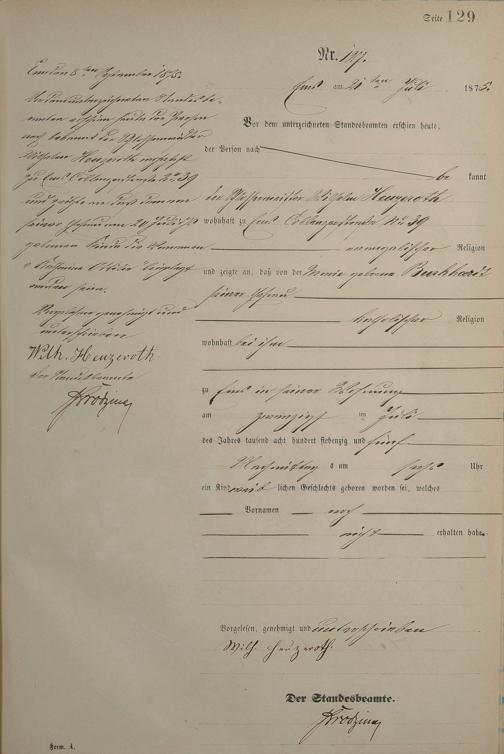 Seite 129
Nr. 127.
Ems am 21ten Juli 1875.
Vor dem unterzeichneten Standesbeamten erschien heute,
der Person nach
be kannt
der Wilhelm Heuzeroth
wohnhaft zu Ems Coblenzerstraße No 39
evangelischer Religion
und zeigte an, daß von der Maria geborene Burkhardt
seiner Ehefrau
katholischer Religion
wohnhaft bei ihm
zu Ems in seiner Wohnung
am zwanzigsten Juli
des Jahres tausend acht hundert siebenzig und fünf
Nachmittags um sechs Uhr
ein Kind weib lichen Geschlechts geboren worden sei, welches
Vornamen noch
nicht erhalten habe.
Vorgelesen, genehmigt und unterschrieben
Wilh. Heuzeroth.
Der Standesbeamte.
Ems den 8ten September 1875.
Vor dem unterzeichneten Standesbe-
amten erschien heute der Person
nach bekannt der
Wilhelm Heuzeroth wohnhaft
zu Ems Coblenzerstraße No 39
und zeigte an daß dem von
seiner Ehefrau am 20 Juli
geborenen Kinde die Vornamen
Ottilie beigelegt
worden seien.
Vorgelesen genehmigt und
unterschrieben
Wilh. Heuzeroth
Der Standesbeamte
Form. A.